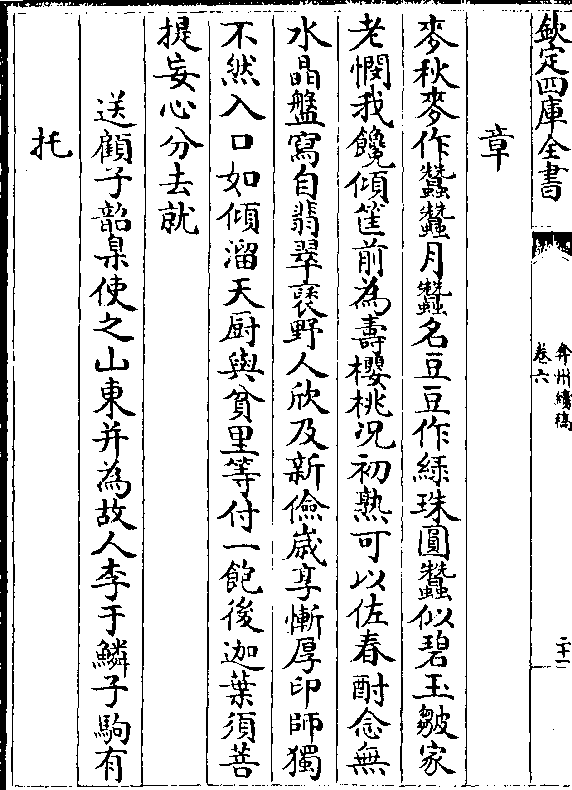 欽定四庫全書
弇州續稿
卷六
二十一
章
麥秋麥作蠶蠶月蠶名豆豆作綠珠圓蠶似碧玉皺家
老憫我饞傾筐前為壽櫻桃況初熟可以佐春酎念無
水晶盤寫自翡翠褎野人欣及新儉歲享慚厚印師獨
不然入口如傾溜天厨與貧里等付一飽後迦葉須菩
提妄心分去就
送顧子韶臬使之山東并為故人李于鱗子駒有
托